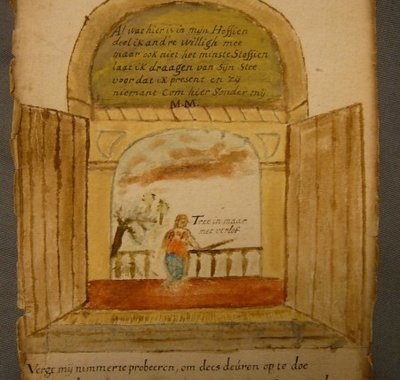 Al wat hier is in mijn Hoffien
deel ik andre willigh mee
maar ook niet het minste Stoffien
laat ik draagen van Sijn Stee
voor dat ik present en zij
niemant Com hier Sonder mij
M M.
Tree in maar
met verlof
Vergt mij nimmer te probeeren, om dees deuron op te doe